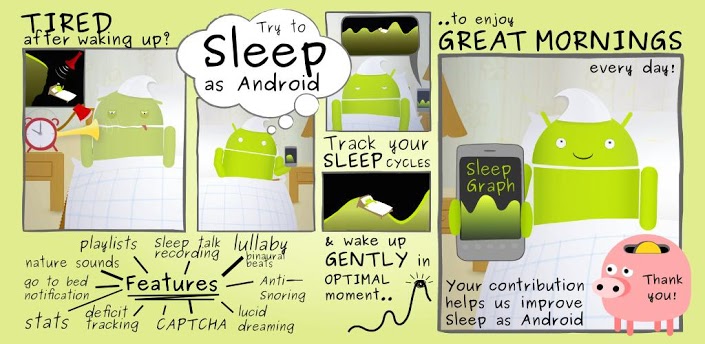 TIRED
after waking up?
Try to
Sleep
as Android
Track your
SLEEP CYCLES
& wake up
GENTLY in
OPTIMAL
moment..
..to enjoy
GREAT MORNINGS
every day!
Sleep
Graph
Your contribution
helps us improve
Sleep as Android
Thank
you!
Features
playlists
sleep talk
recording
lullaby
binaural
beats
Anti-
Snoring
lucid
dreaming
CAPTCHA
deficit
tracking
stats
go to bed
notification
nature sounds